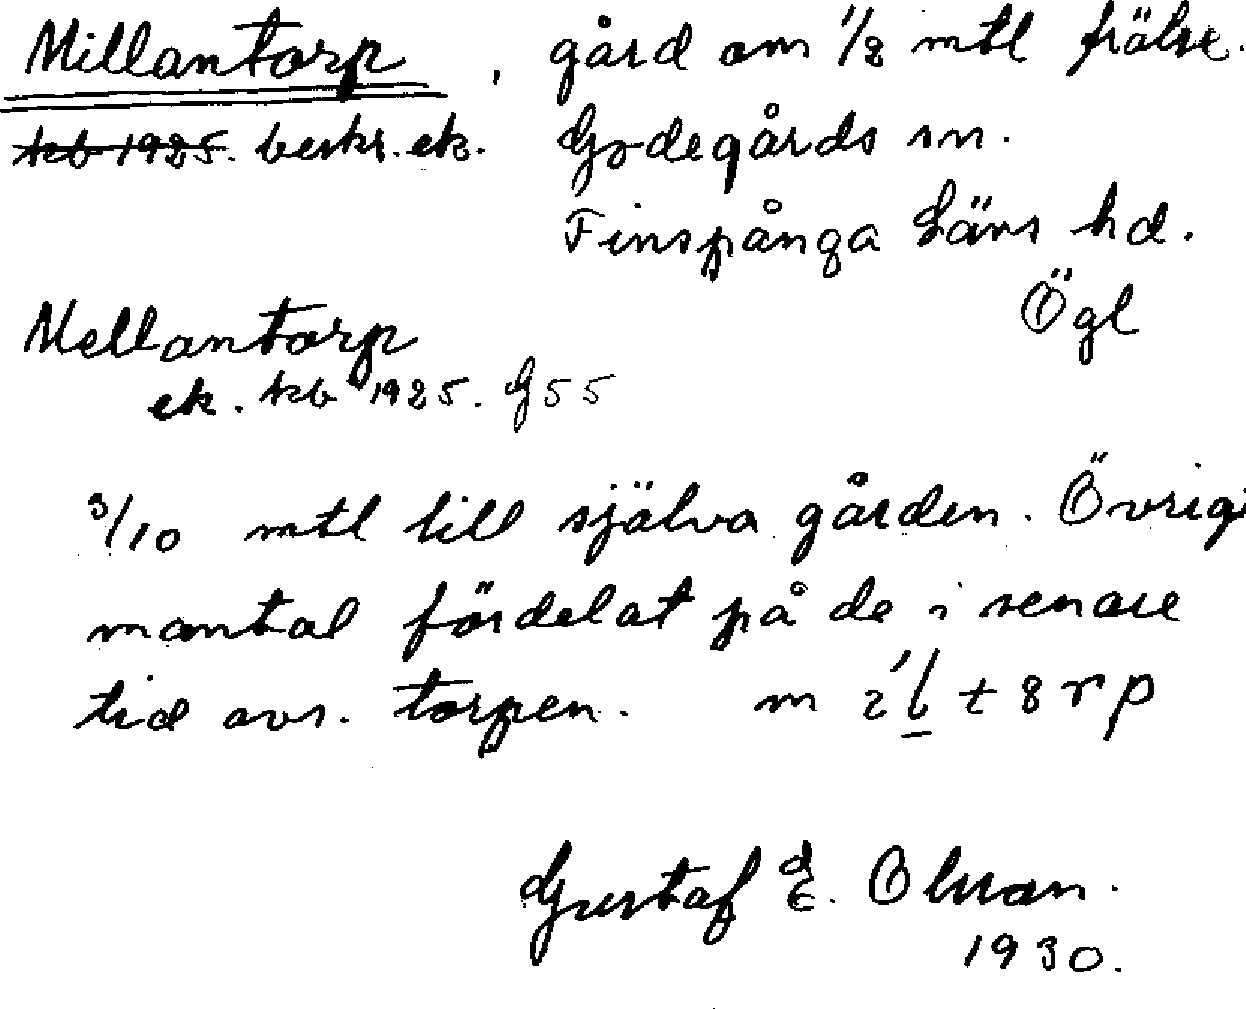 Millantorp, gård om 1/2 mtl frälse.
kb 1925. beskr. ek. Godegårds sn.
Finspånga läns hd.
Ögl
Mellantorp
ek. kb 1925. G55
3/10 mtl till själva gården. Övrigt
mantal fördelat på de i senare
tid avs. torpen. m
Gustaf E. Olsson.
1930.